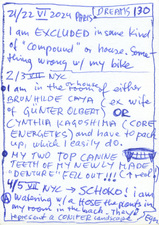 21/22 VI 2024 PARIS DREAMS 130
I am EXCLUDED in some kind
of "compound" or house. Some-
thing wrong w/ my bike
2/3 VII NYC
I am in the room of either
or house
BRONHILDE CAYA (ex wife
of GÜNTER OLBERT) OR
CYNTHIA KAGOSHIMA (CORE
ENERGETICS) and have to pack
up, which I easily do.
MY TWO TOP CANINE
TEETH OF MY NEWLY MADE
"DENTURE" FELL OUT!!!
4/5 VII NYC → SCHOKO! I am
WATERING w/ A HOSE the plants in
my room in the back. They
represent a CONIFER landscape